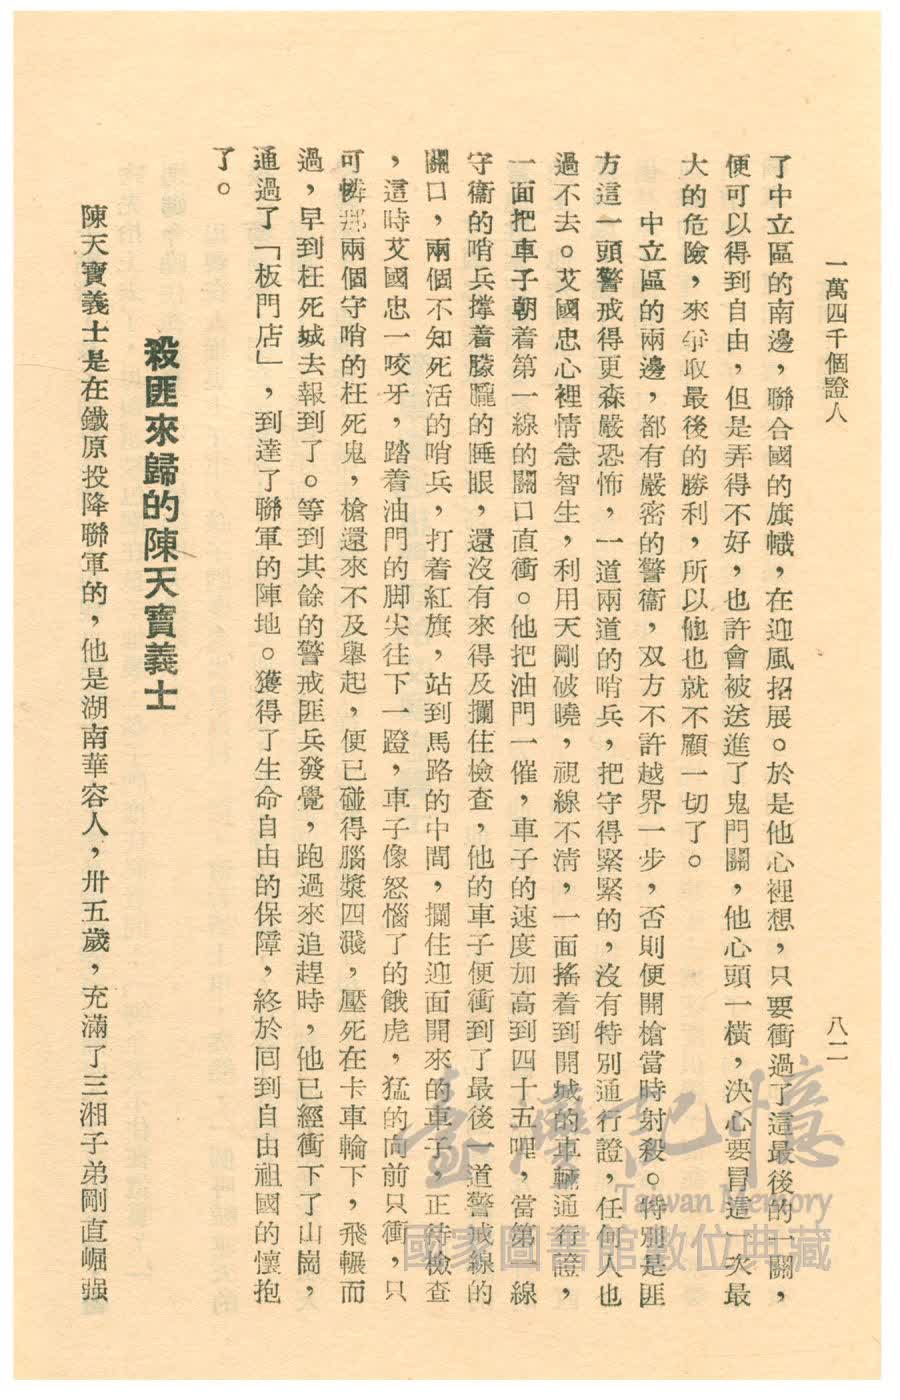 一萬四千個證人
八二
了中立區的南邊，聯合國的旗幟，在迎風招展。於是他心裡想，只要衝過了這最後的一關，
便可以得到自由，但是弄得不好，也許會被送進了鬼門關，他心頭一橫，決心要冒這一次最
大的危險，來爭取最後的勝利，所以他也就不顧一切了。
中立區的兩邊，都有嚴密的警衞，双方不許越界一步，否則便開槍當時射殺。特別是匪
方這一頭警戒得更森嚴恐怖，一道兩道的哨兵，把守得緊緊的，沒有特別通行證，任何人也
過不去。艾國忠心裡情急智生，利用天剛破曉，視線不清，一面搖着到開城的車輛通行證，
一面把車子朝着第一線的關口直衝。他把油門一催，車子的速度加高到四十五哩，當第一線
守衞的哨兵撑着朦朧的睡眼，還沒有來得及攔住檢查，他的車子便衝到了最後一道警戒線的
關口，兩個不知死活的哨兵，打着紅旗，站到馬路的中間，攔住迎面開來的車子，正待檢查
，這時艾國忠一咬牙，踏着油門的脚尖往下一蹬，車子像怒惱了的餓虎，猛的向前只衝，只
可憐那兩個守哨的枉死鬼，槍還來不及舉起，便已碰得腦漿四濺，壓死在卡車輪下，飛輾而
過，早到枉死城去報到了。等到其餘的警戒匪兵發覺，跑過來追趕時，他已經衝下了山崗，
通過了「板門店」，到達了聯軍的陣地。獲得了生命自由的保障，終於囘到自由祖國的懷抱
了。
殺匪來歸的陳天寶義士
陳天寶義士是在鐵原投降聯軍的，他是湖南華容人，卅五歲，充滿了三湘子弟剛直崛强
臺灣記憶
Taiwan Memory
國家圖書館數位典藏